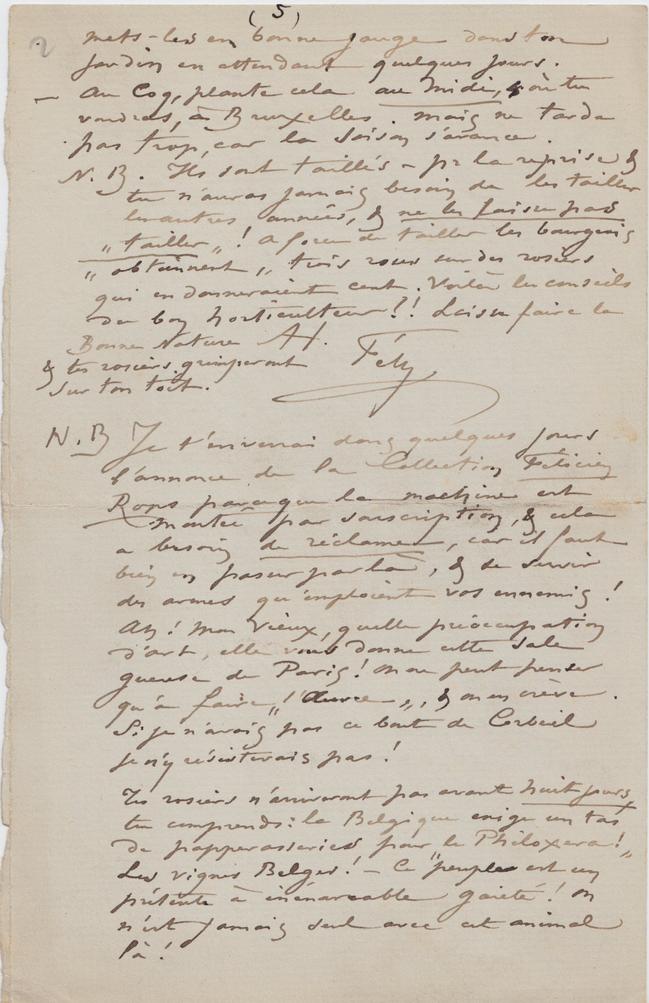 (5)
2
mets-les en bonne jauge dans ton
jardin en attendant quelques jours.
– Au Coq, plante cela au Midi, & où tu
voudras, à Bruxelles. mais ne tarde
pas trop, car la saison s'avance.
N. B. Ils sont taillés – pr la reprise &
tu n'auras jamais besoin de les tailler
les autres années, & ne les laisse pas
„tailler„! A force de tailler les bourgeois
„obtiennent„ trois roses sur des rosiers
qui en donneraient cent. Voilà les conseils
du bon horticulteur!! Laisse faire la
Bonne Nature
& tes rosiers grimperont
sur ton toit.
Fély
N. B Je t'enverrai dans quelques jours
l'annonce de la Collection Félicien
Rops parceque la machine est
montée par souscription, & cela
a besoin de réclame, car il faut
bien en passer par là, & se servir
des armes qu'emploient vos ennemis!
Ah! mon vieux, quelle préoccupation
d'art, elle vous donne cette sale
gueuse de Paris! On ne peut penser
qu'à faire „l'Œuvre„, & on en crève.
Si je n'avais pas ce bout de Corbeil
je n'y résisterais pas!
Tes rosiers n'arriveront pas avant huit jours,
tu comprends: la Belgique exige un tas
de papperasseries pour le Philoxera!
Les vignes Belges! – Ce „peuple„ est un
prétexte à inénarrable gaieté! On
n'est jamais seul avec cet animal
là!